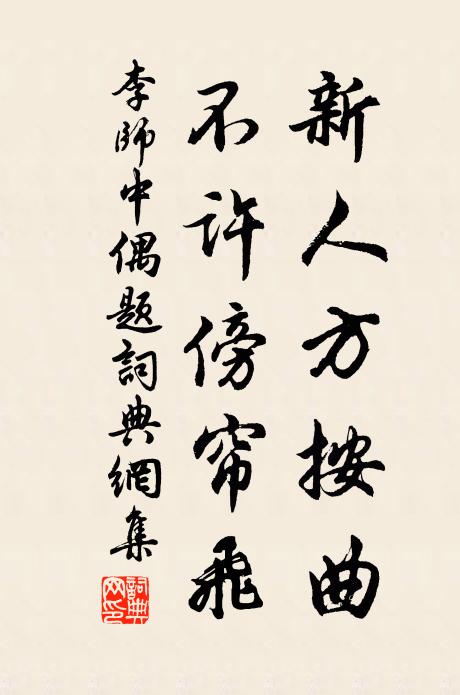 新人方按曲
不许傍帘飛
李師中偶題詞典網集
詞典网印